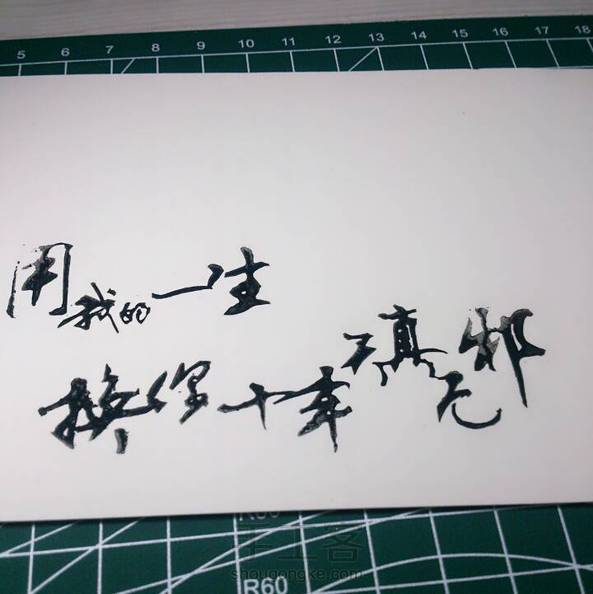 5 6 7 8 9 10 11 12 13 14 15 16 17 18
用我的一生
换你十年天真无邪
手工客
shougongke.com
R60